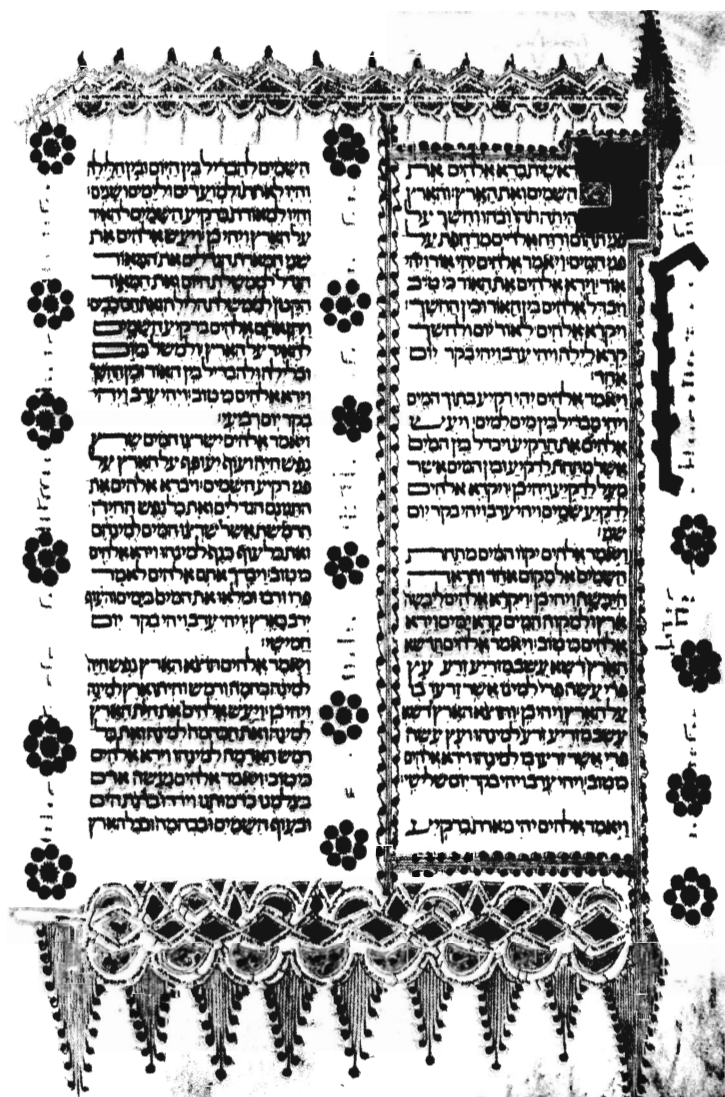 ראשית ברא אלהים את
השמים ואת הארץ והארץ
היתה תהו ובהו וחשך על
פני תהום ורוח אלהים מרחפת על
פני המים ויאמר אלהים יהי אור ויהי
אור וירא אלהים את האור כי טוב
ויבדל אלהים בין האור ובין החשך
ויקרא אלהים לאור יום ולחשך
קרא לילה ויהי ערב ויהי בקר יום
אחד׃
ויאמר אלהים יהי רקיע בתוך המים
ויהי מבדיל בין מים למים׃ ויעש
אלהים את הרקיע ויבדל בין המים
אשר מתחת לרקיע ובין המים אשר
מעל לרקיע ויהי כן׃ ויקרא אלהים
לרקיע שמים ויהי ערב ויהי בקר יום
שני׃
ויאמר אלהים יקוו המים מתחת
השמים אל מקום אחד ותראה
היבשה ויהי כן׃ ויקרא אלהים ליבשה
ארץ ולמקוה המים קרא ימים וירא
אלהים כי טוב׃ ויאמר אלהים תדשא
הארץ דשא עשב מזריע זרע עץ
פרי עשה פרי למינו אשר זרעו בו
על הארץ ויהי כן׃ ותוצא הארץ דשא
עשב מזריע זרע למינהו ועץ עשה
פרי אשר זרעו בו למינהו וירא אלהים
כי טוב׃ ויהי ערב ויהי בקר יום שלישי׃
ויאמר אלהים יהי מארת ברקיע
השמים להבדיל בין היום ובין הלילה
והיו לאתת ולמועדים ולימים ושנים׃
והיו למאורת ברקיע השמים להאיר
על הארץ ויהי כן׃ ויעש אלהים את
שני המארת הגדלים את המאור
הגדל לממשלת היום ואת המאור
הקטן לממשלת הלילה ואת הכוכבים׃
ויתן אתם אלהים ברקיע השמים
להאיר על הארץ׃ ולמשל ביום
ובלילה ולהבדיל בין האור ובין החשך
וירא אלהים כי טוב׃ ויהי ערב ויהי
בקר יום רביעי׃
ויאמר אלהים ישרצו המים שרץ
נפש חיה ועוף יעופף על הארץ על
פני רקיע השמים׃ ויברא אלהים את
התנינם הגדלים ואת כל נפש החיה
הרמשת אשר שרצו המים למינהם
ואת כל עוף כנף למינהו וירא אלהים
כי טוב׃ ויברך אתם אלהים לאמר
פרו ורבו ומלאו את המים בימים והעוף
ירב בארץ׃ ויהי ערב ויהי בקר יום
חמישי׃
ויאמר אלהים תוצא הארץ נפש חיה
למינה בהמה ורמש וחיתו ארץ למינה
ויהי כן׃ ויעש אלהים את חית הארץ
למינה ואת הבהמה למינה ואת כל
רמש האדמה למינהו וירא אלהים
כי טוב׃ ויאמר אלהים נעשה אדם
בצלמנו כדמותנו וירדו בדגת הים
ובעוף השמים ובבהמה ובכל הארץ